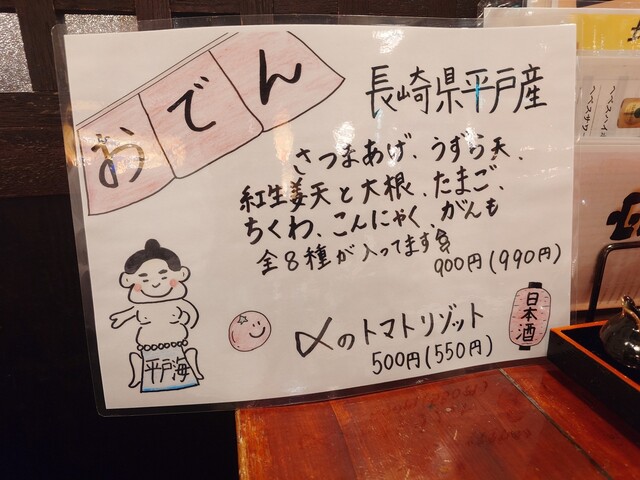 おでん
長崎県平戸産
さつまあげ、うずら天、
紅生姜天と大根、たまご、
ちくわ、こんにゃく、がんも
全8種が入ってます
900円(990円)
〆のトマトリゾット
500円(550円)
日本酒
平戸海